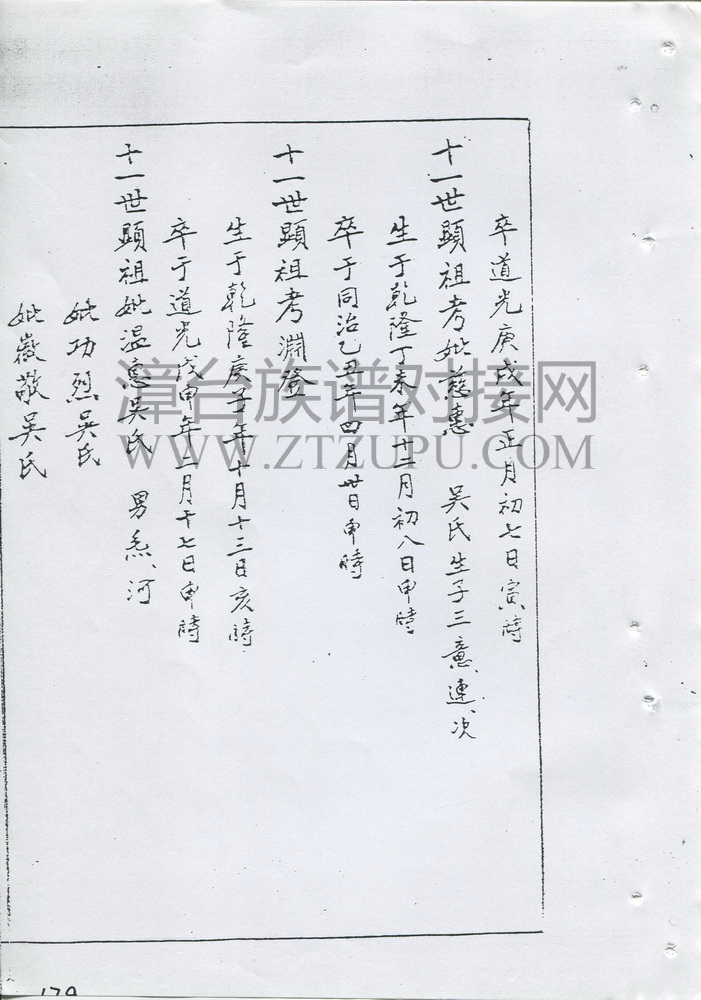 卒道光庚戌年正月初七日寅時
十一世顯祖考妣慈惠 吳氏生子三意、連、次
生于乾隆丁未年十二月初八日申時
卒于同治乙丑年四月廿日申時
十一世顯祖考淵登
生于乾隆庚子年十月十三日亥時
卒于道光戊申年二月十七日申時
十一世顯祖妣溫惠吳氏 男、河
妣功烈吳氏
妣徽敬吳氏
漳台族谱对接网
WWW.ZTZUPU.COM
179